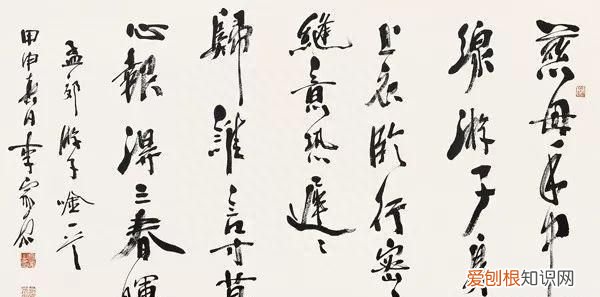 慈母手中
線游子身
上衣臨行密々
縫意恐遲々
歸誰言寸草
心報得三春暉
孟郊游子吟一首
甲申春日李家
爱刨根知识网